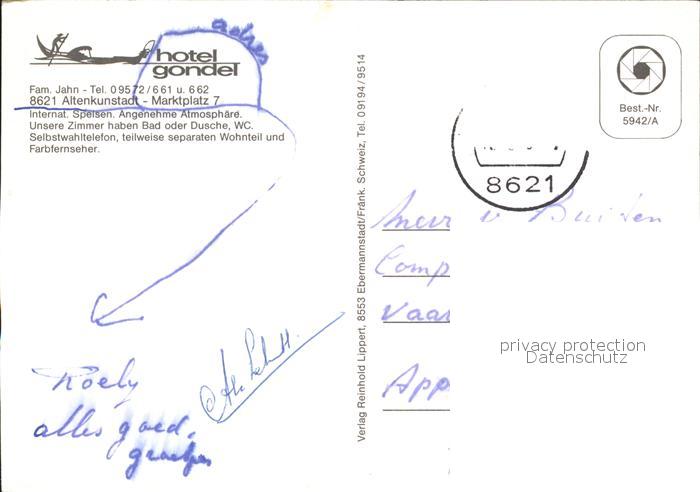 adres
hotel
gondel
Fam. Jahn - Tel. 09572/661 u. 662
8621 Altenkunstadt - Marktplatz 7
Internat. Speisen. Angenehme Atmosphäre.
Unsere Zimmer haben Bad oder Dusche, WC.
Selbstwahltelefon, teilweise separaten Wohnteil und
Farbfernseher.
Roely
alles goed.
groetjes
Verlag Reinhold Lippert, 8553 Ebermannstadt/Fränk. Schweiz, Tel. 09194/9514
Best.-Nr.
5942/A
8621
Comp
Vaar
App
privacy protection
Datenschutz